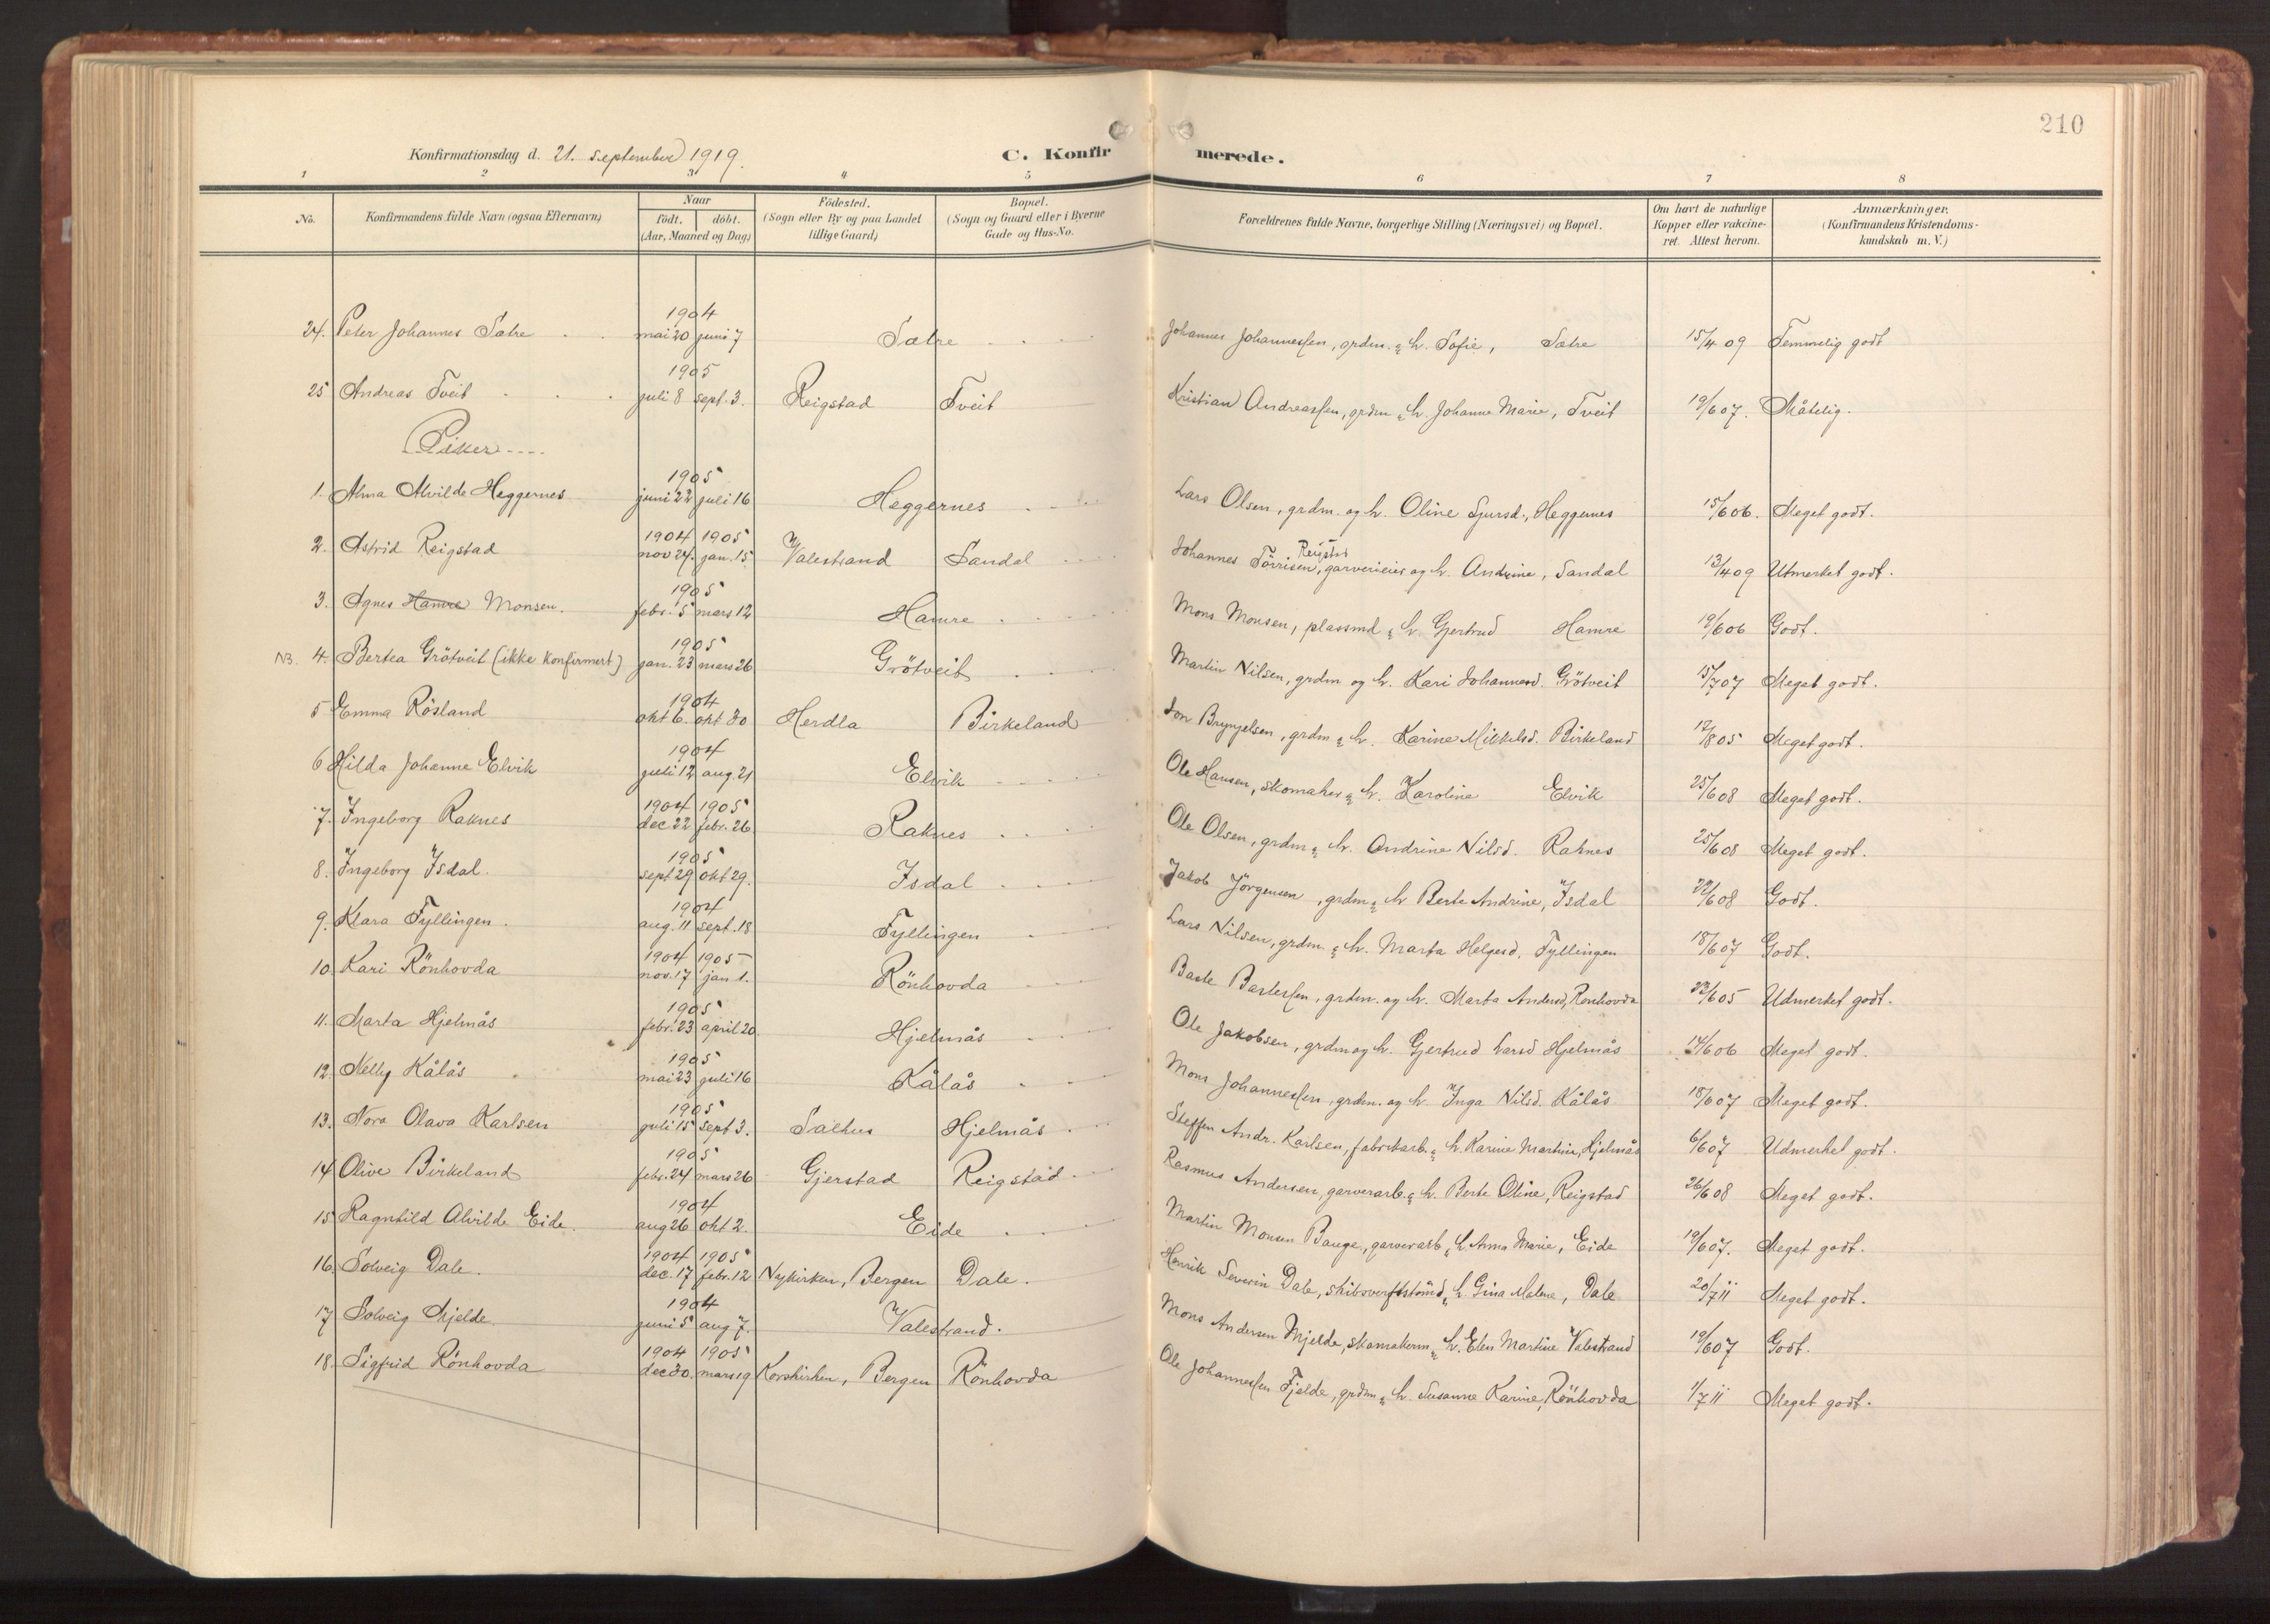 210
Konfirmationsdag d. 21. september 1919.
C. Konfirmerede.
1 2 3 4 5 6 7 8
No.
Konfirmandens fulde Navn (ogsaa Efternavn)
Naar
födt. döbt.
(Aar, Maaned og Dag)
Födested.
(Sogn eller By og paa Landet
tillige Gaard)
Bopæl.
(Sogn og Gaard eller i Byerne
Gade og Hus-No.
Forældrenes fulde Navne, borgerlige Stilling (Næringsvei) og Bopæl.
Om havt de naturlige
Kopper eller vakcine-
ret. Attest herom.
Anmærkninger.
(Konfirmandens Kristendoms-
kundskab m. V.)
1904
24. Peter Johannes Sætre mai 20 juni 7 Sætre Johannes Johannessen, grdm. & h. Sofie, Sætre 15/4 09 Temmelig godt
1905
25 Andreas Tveit juli 8 sept. 3. Reigstad Tveit Kristian Andreassen, grdm & h. Johanne Marie, Tveit 19/6 07. Måtelig.
Piker
1905
1. Alma Alvilde Heggernes juni 22 juli 16 Heggernes Lars Olsen, grdm. og h. Oline Sjursd., Heggernes 15/6 06. Meget godt.
1904 1905
2. Astrid Reigstad nov 24. jan. 15 Valestrand Sandal Johannes Törrisen Reigstad, garverieier og h. Andrine, Sandal 13/4 09 Utmerket godt.
1905
3. Agnes Hamre Monsen. febr. 5 mars 12 Hamre Mons Monsen, plassmd & h. Gjertrud Hamre 19/6 06 Godt.
1905
NB. 4. Bertea Grötveit (ikke konfirmert) jan. 23 mars 26 Grötveit Martin Nilsen, grdm og h. Kari Johannesd. Grötveit 15/7 07 Meget godt.
1904
5 Emma Rösland okt 6. okt 30 Herdla Birkeland Jon Brynjelsen, grdm & h. Karine Mikkelsd. Birkeland 12/8 05 Meget godt.
1904
6 Hilda Johanne Elvik juli 12 aug. 21 Elvik Ole Hansen, skomaker & h. Karoline Elvik 25/6 08 Meget godt.
1904 1905
7. Ingeborg Raknes dec. 22 febr. 26 Raknes Ole Olsen, grdm & h. Andrine Nilsd. Raknes 25/6 08 Meget godt.
1905
8. Ingeborg Isdal. sept 29 okt 29. Isdal Jakob Jörgensen, grdm & h Berte Andrine, Isdal 22/6 08 Godt.
1904
9. Klara Fyllingen. aug. 11 sept. 18 Fyllingen Lars Nilsen, grdm & h. Marta Helgesd. Fyllingen 18/6 07 Godt.
1904 1905
10. Kari Rönhovda nov. 17 jan 1. Rönhovda Baste Bastessen, grdm. og h. Marta Andersd, Rönhovda 22/6 05 Udmerket godt.
1905
11. Marta Hjelmås febr. 23 april 20. Hjelmås Ole Jakobsen, grdm og h. Gjertrud Larsd Hjelmås 14/6 06 Meget godt.
1905
12. Nelly Kålås mai 23 juli 16 Kålås Mons Johannessen, grdm. og h. Inga Nilsd. Kålås 18/6 07 Meget godt.
1905
13. Nora Olava Karlsen juli 15 sept 3. Salhus Hjelmås Steffen Andr. Karlsen, fabrikarb. & h. Karine Martine, Hjelmås 6/6 07 Udmerket godt.
1905
14 Olive Birkeland febr. 24 mars 26 Gjerstad Reigstad Rasmus Andersen, garverarb. & h. Berte Oline, Reigstad 26/6 08 Meget godt.
1904
15 Ragnhild Alvilde Eide. aug 26 okt 2. Eide Martin Monsen Bauge, garverarb & h. Anna Marie, Eide 19/6 07. Meget godt.
1904 1905
16. Solveig Dale. dec. 17 febr. 12 Nykirken, Bergen Dale. Henrik Severin Dale, skibsverftstömd, & h Gina Malene, Dale 20/7 11 Meget godt.
1904
17 Solveig Mjelde. juni 5 aug 7. Valestrand. Mons Andersen Mjelde, skomakerm & h. Elen Martine Valestrand 19/6 07 Godt.
1904 1905
18. Sigfrid Rönhovda dec 30. mars 19 Korskirken, Bergen Rönhovda Ole Johannessen Fjelde, grdm & h. Susanne Karine, Rönhovda 1/7 11 Meget godt.